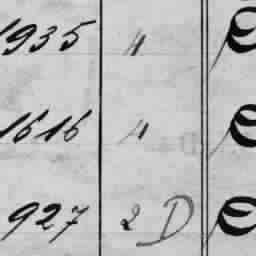 1935 "
1616 "
927 2 D